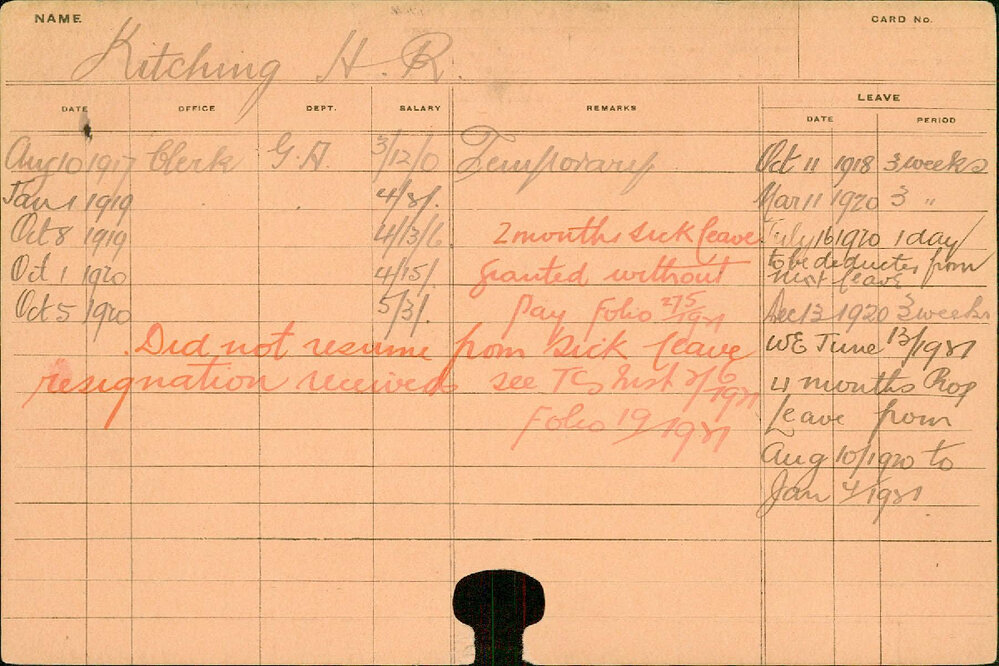 NAME
CARD No.
Kitching H. R.
DATE OFFICE DEPT. SALARY REMARKS LEAVE
DATE PERIOD
Aug 10 1917 Clerk G.A. 3/12/0 Temporary Oct 11 1918 3 weeks
Jan 1 1919 4/8/. Mar 11 1920 3 "
Oct 8 1919 4/13/6 2 months sick leave July 16 1920 1 day
to be deducted from
Oct 1 1920 4/15/. granted without next leave
Oct 5 1920 5/3/. Pay Folio 275/1921 Dec 13 1920 3 weeks
Did not resume from sick leave WE June 13/1921
resignation received see TCs 2/6 1921 4 months
Folio 19/1921 leave from
Aug 10/1920 to
Jan 4/1921